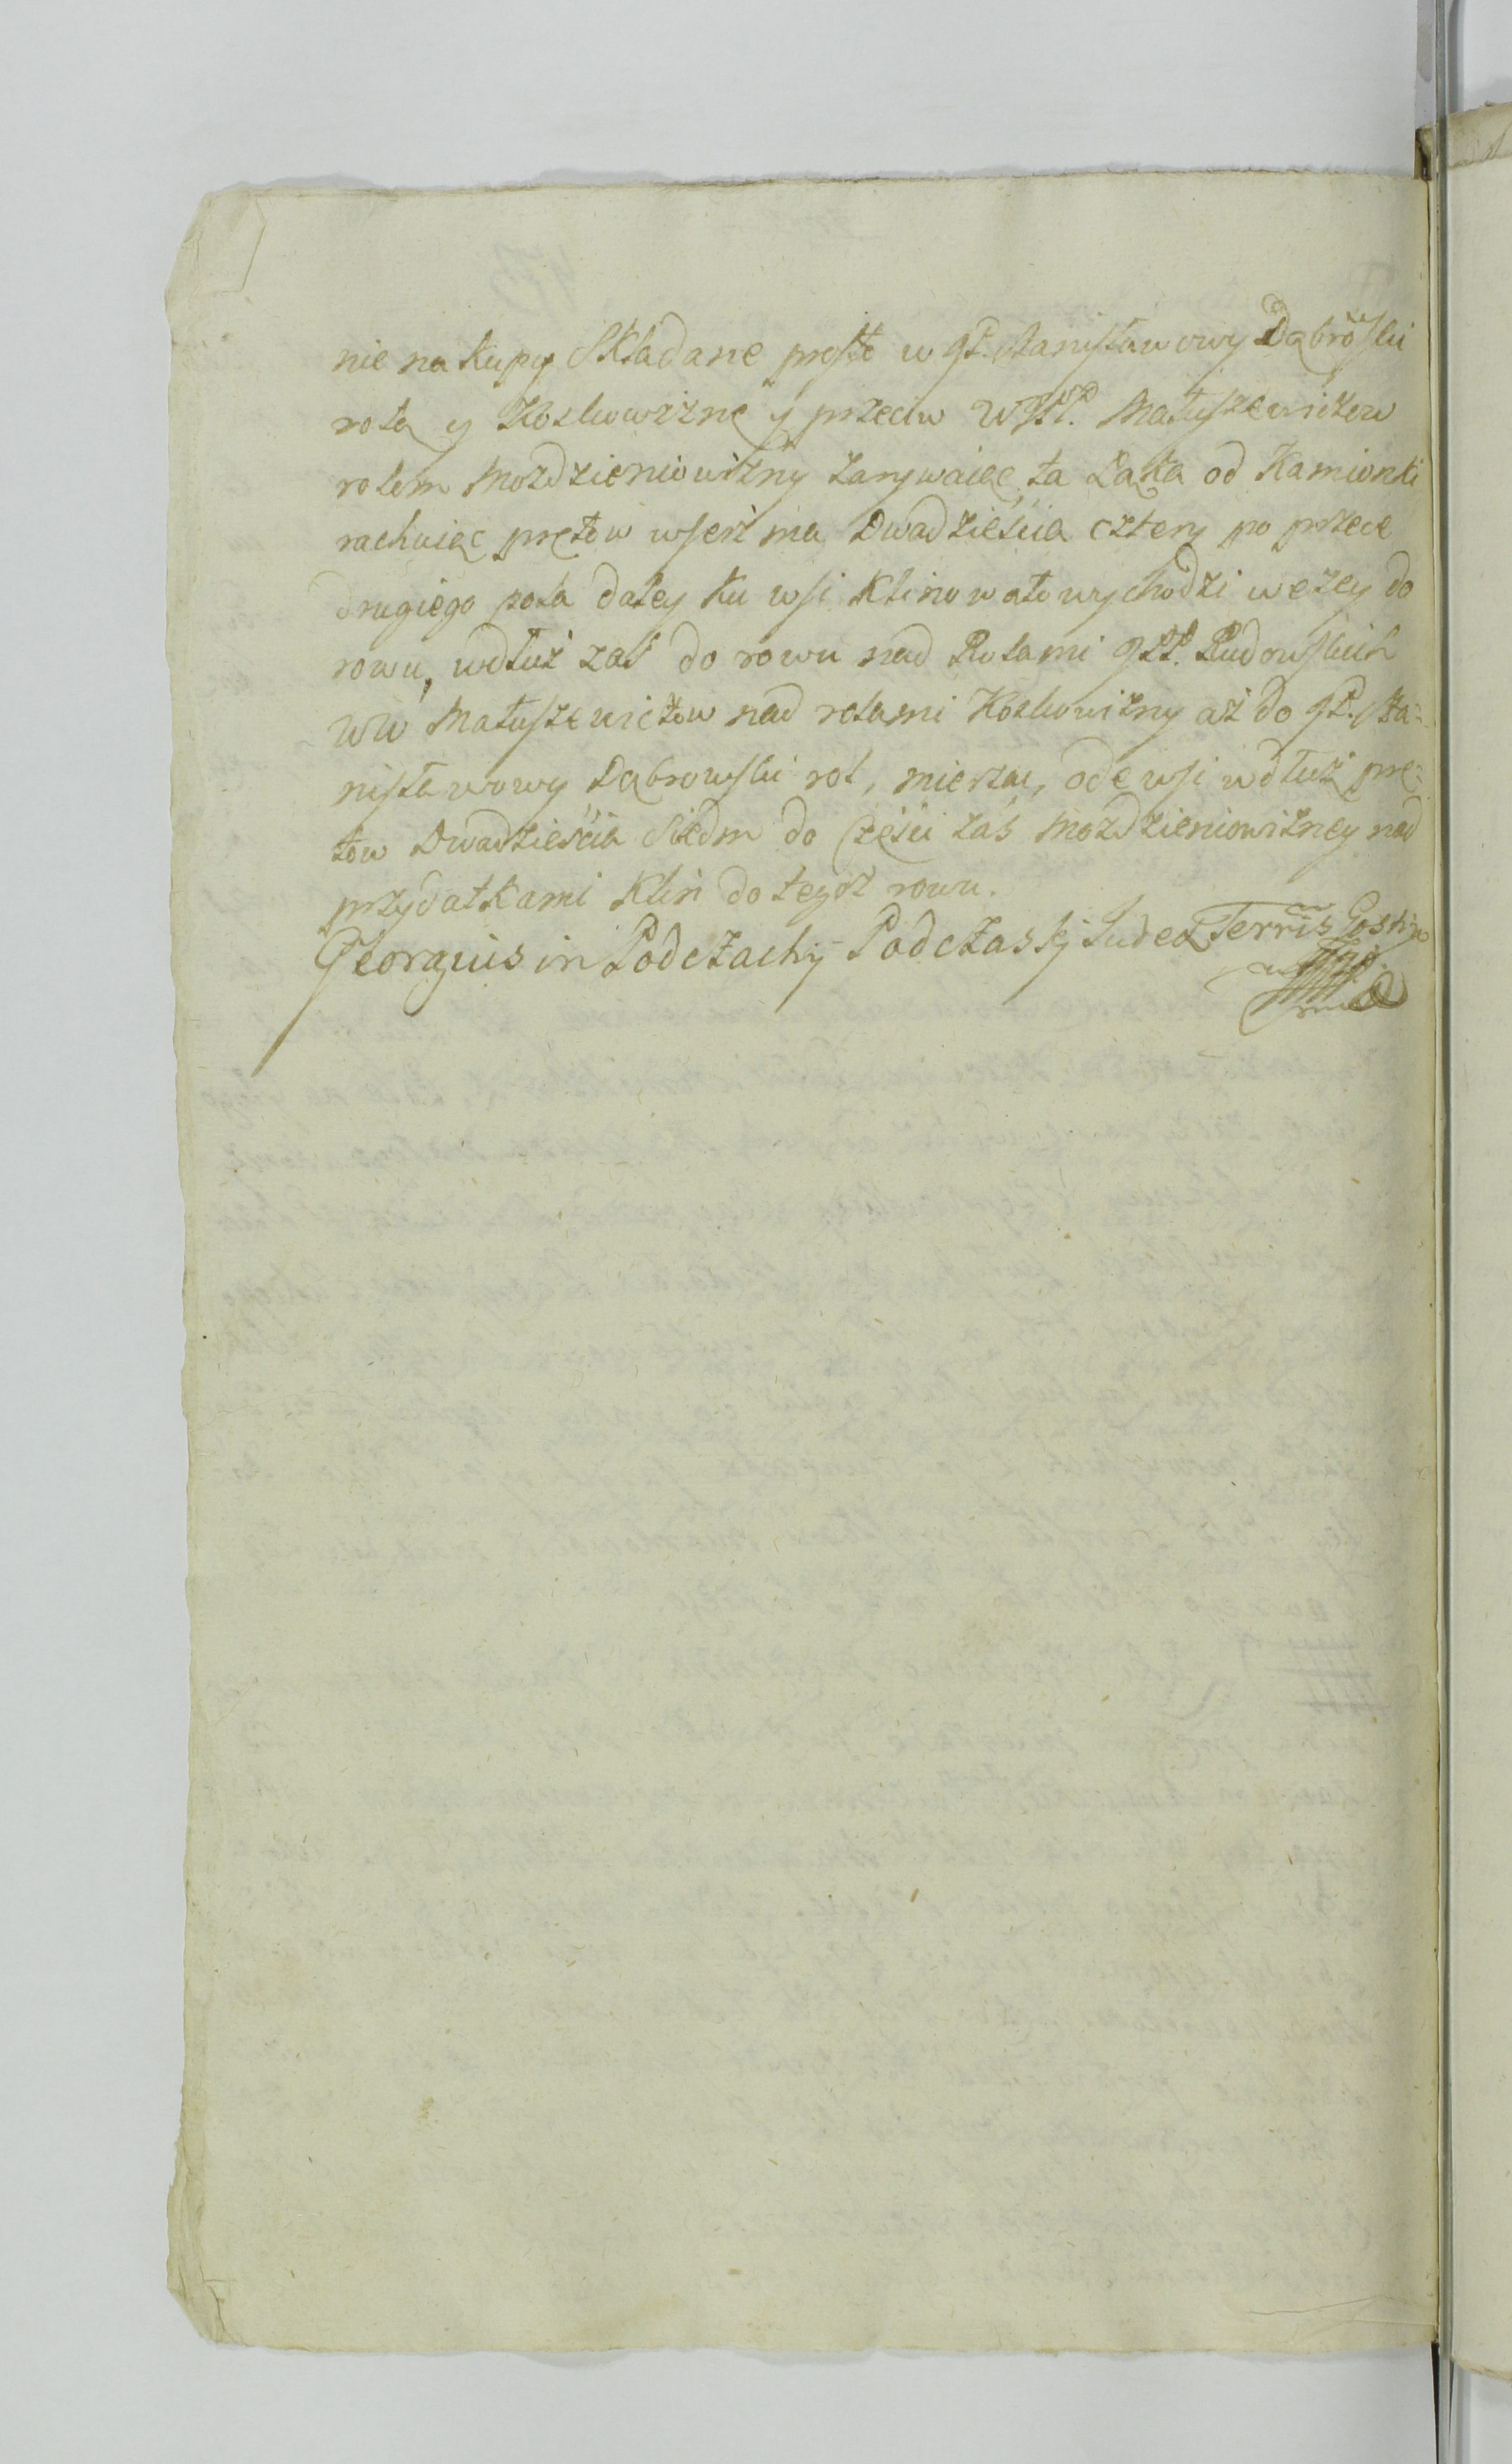 nie na kupy Składane prosto w JP. Stanisławowy Dąbrowski
rolą y Kozłowiznę y przeciw WJPP. Matuszewiczow
rolom Mozdzieniowizny zarywaiąc, ta Łąka od Kamionki
rachuiąc prętow wszerz ma Dwadzieścia cztery po przecę
drugiego pola daley ku wsi klinowato wychodzi wężey do
rowu, wdłuż zaś do rowu nad Rolami JPP. Rudowskich
WW Matuszewiczow nad rolami Kozłowizny aż do JP. Sta-
nisławowy Dąbrowski rol, mierząc, ode wsi wdłuż prę-
tow Dwadzieścia Siedm do Części zaś Mozdzieniowizney nad
przydatkami Klin do tegoż rowu.
Georgius in Podczachy Podczaski Judex Terris Gostin